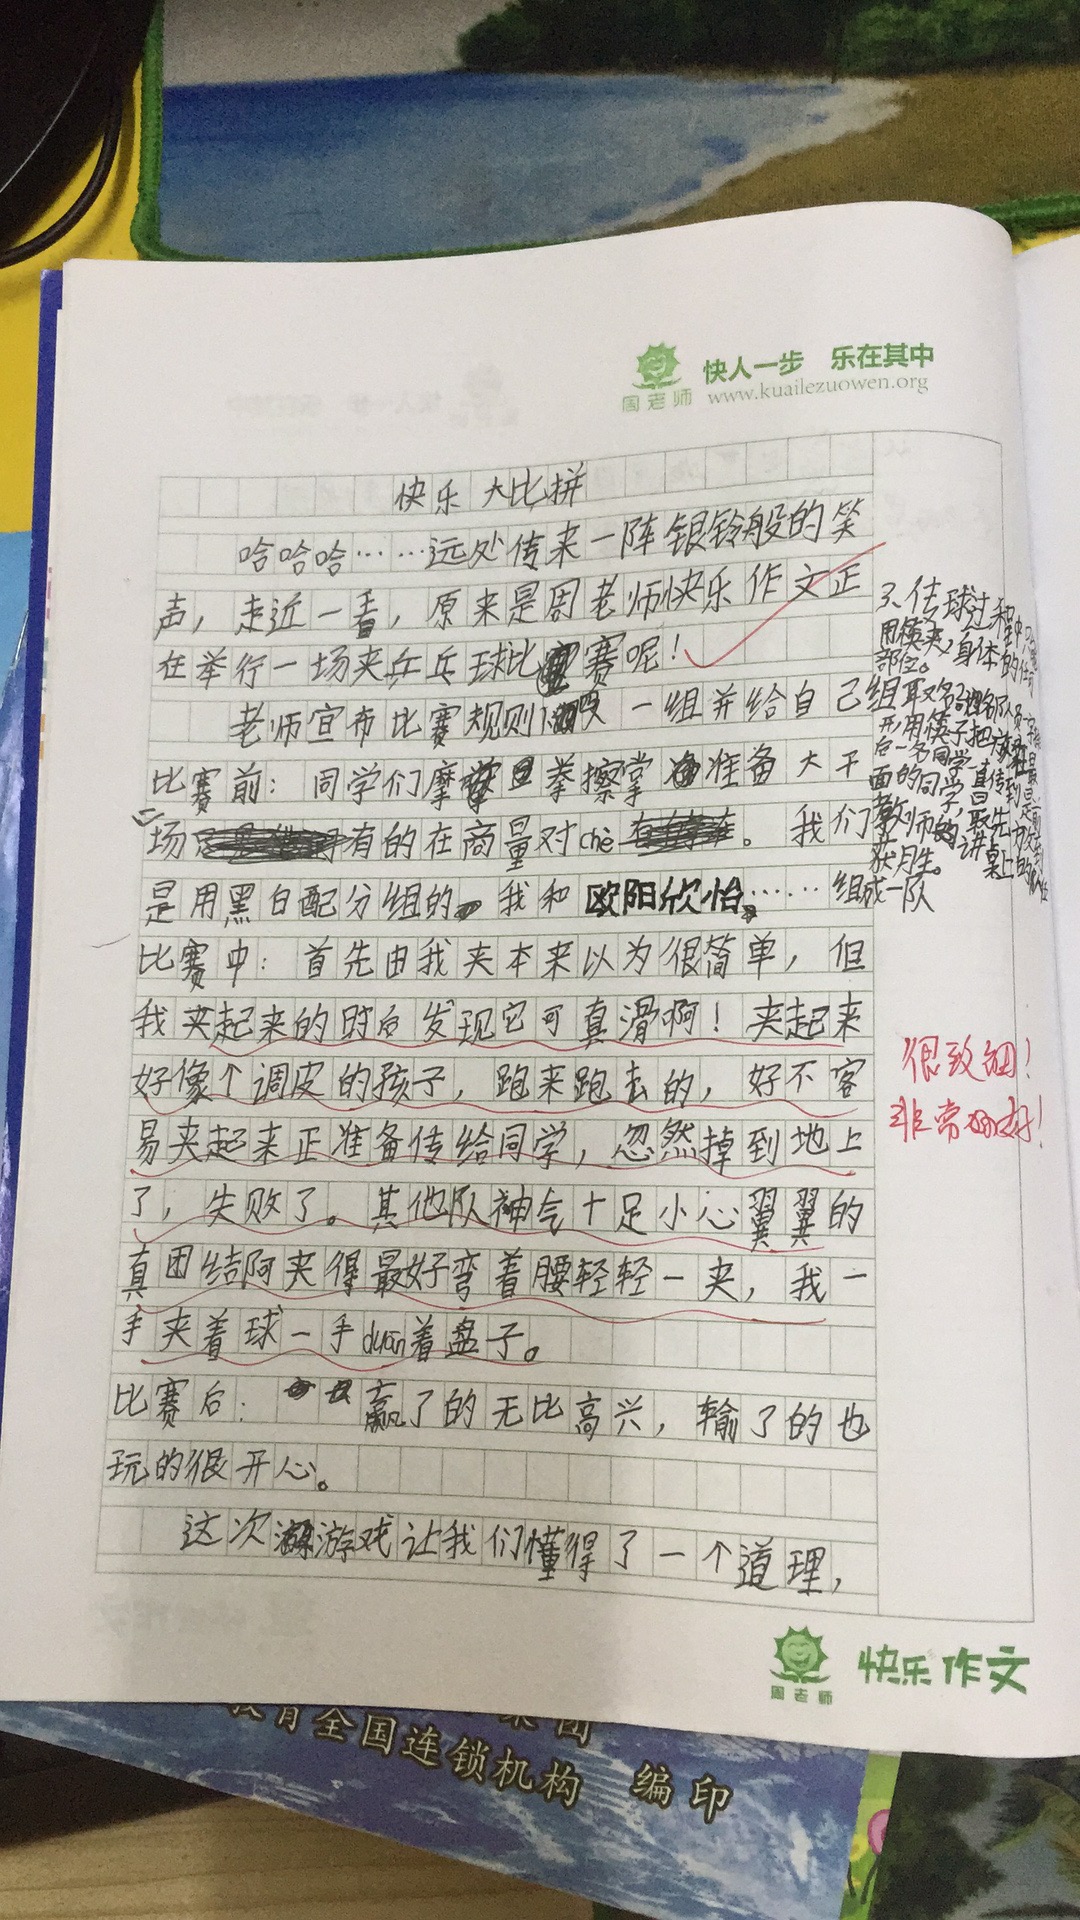 快人一步 乐在其中
周老师 www.kuailezuowen.org
快乐大比拼
哈哈哈……远处传来一阵银铃般的笑
声，走近一看，原来是周老师快乐作文正
在举行一场夹乒乓球比赛呢！
老师宣布比赛规则 一组并给自己组取名
比赛前：同学们摩拳擦掌准备大干
场有的在商量对chè。我们
是用黑白配分组的。我和欧阳欣怡……组成一队
比赛中：首先由我夹本来以为很简单，但
我夹起来的时后发现它可真滑啊！夹起来
好像个调皮的孩子，跑来跑去的，好不容
易夹起来正准备传给同学，忽然掉到地上
了，失败了。其他队神气十足小心翼翼的
真团结阿夹得最好弯着腰轻轻一夹，我一
手夹着球一手duān着盘子。
比赛后：赢了的无比高兴，输了的也
玩的很开心。
这次游戏让我们懂得了一个道理，
3、传球过程中
用筷夹，身体的任何
部位。
很致细！
非常好！
周老师 快乐作文
集团
教育全国连锁机构 编印